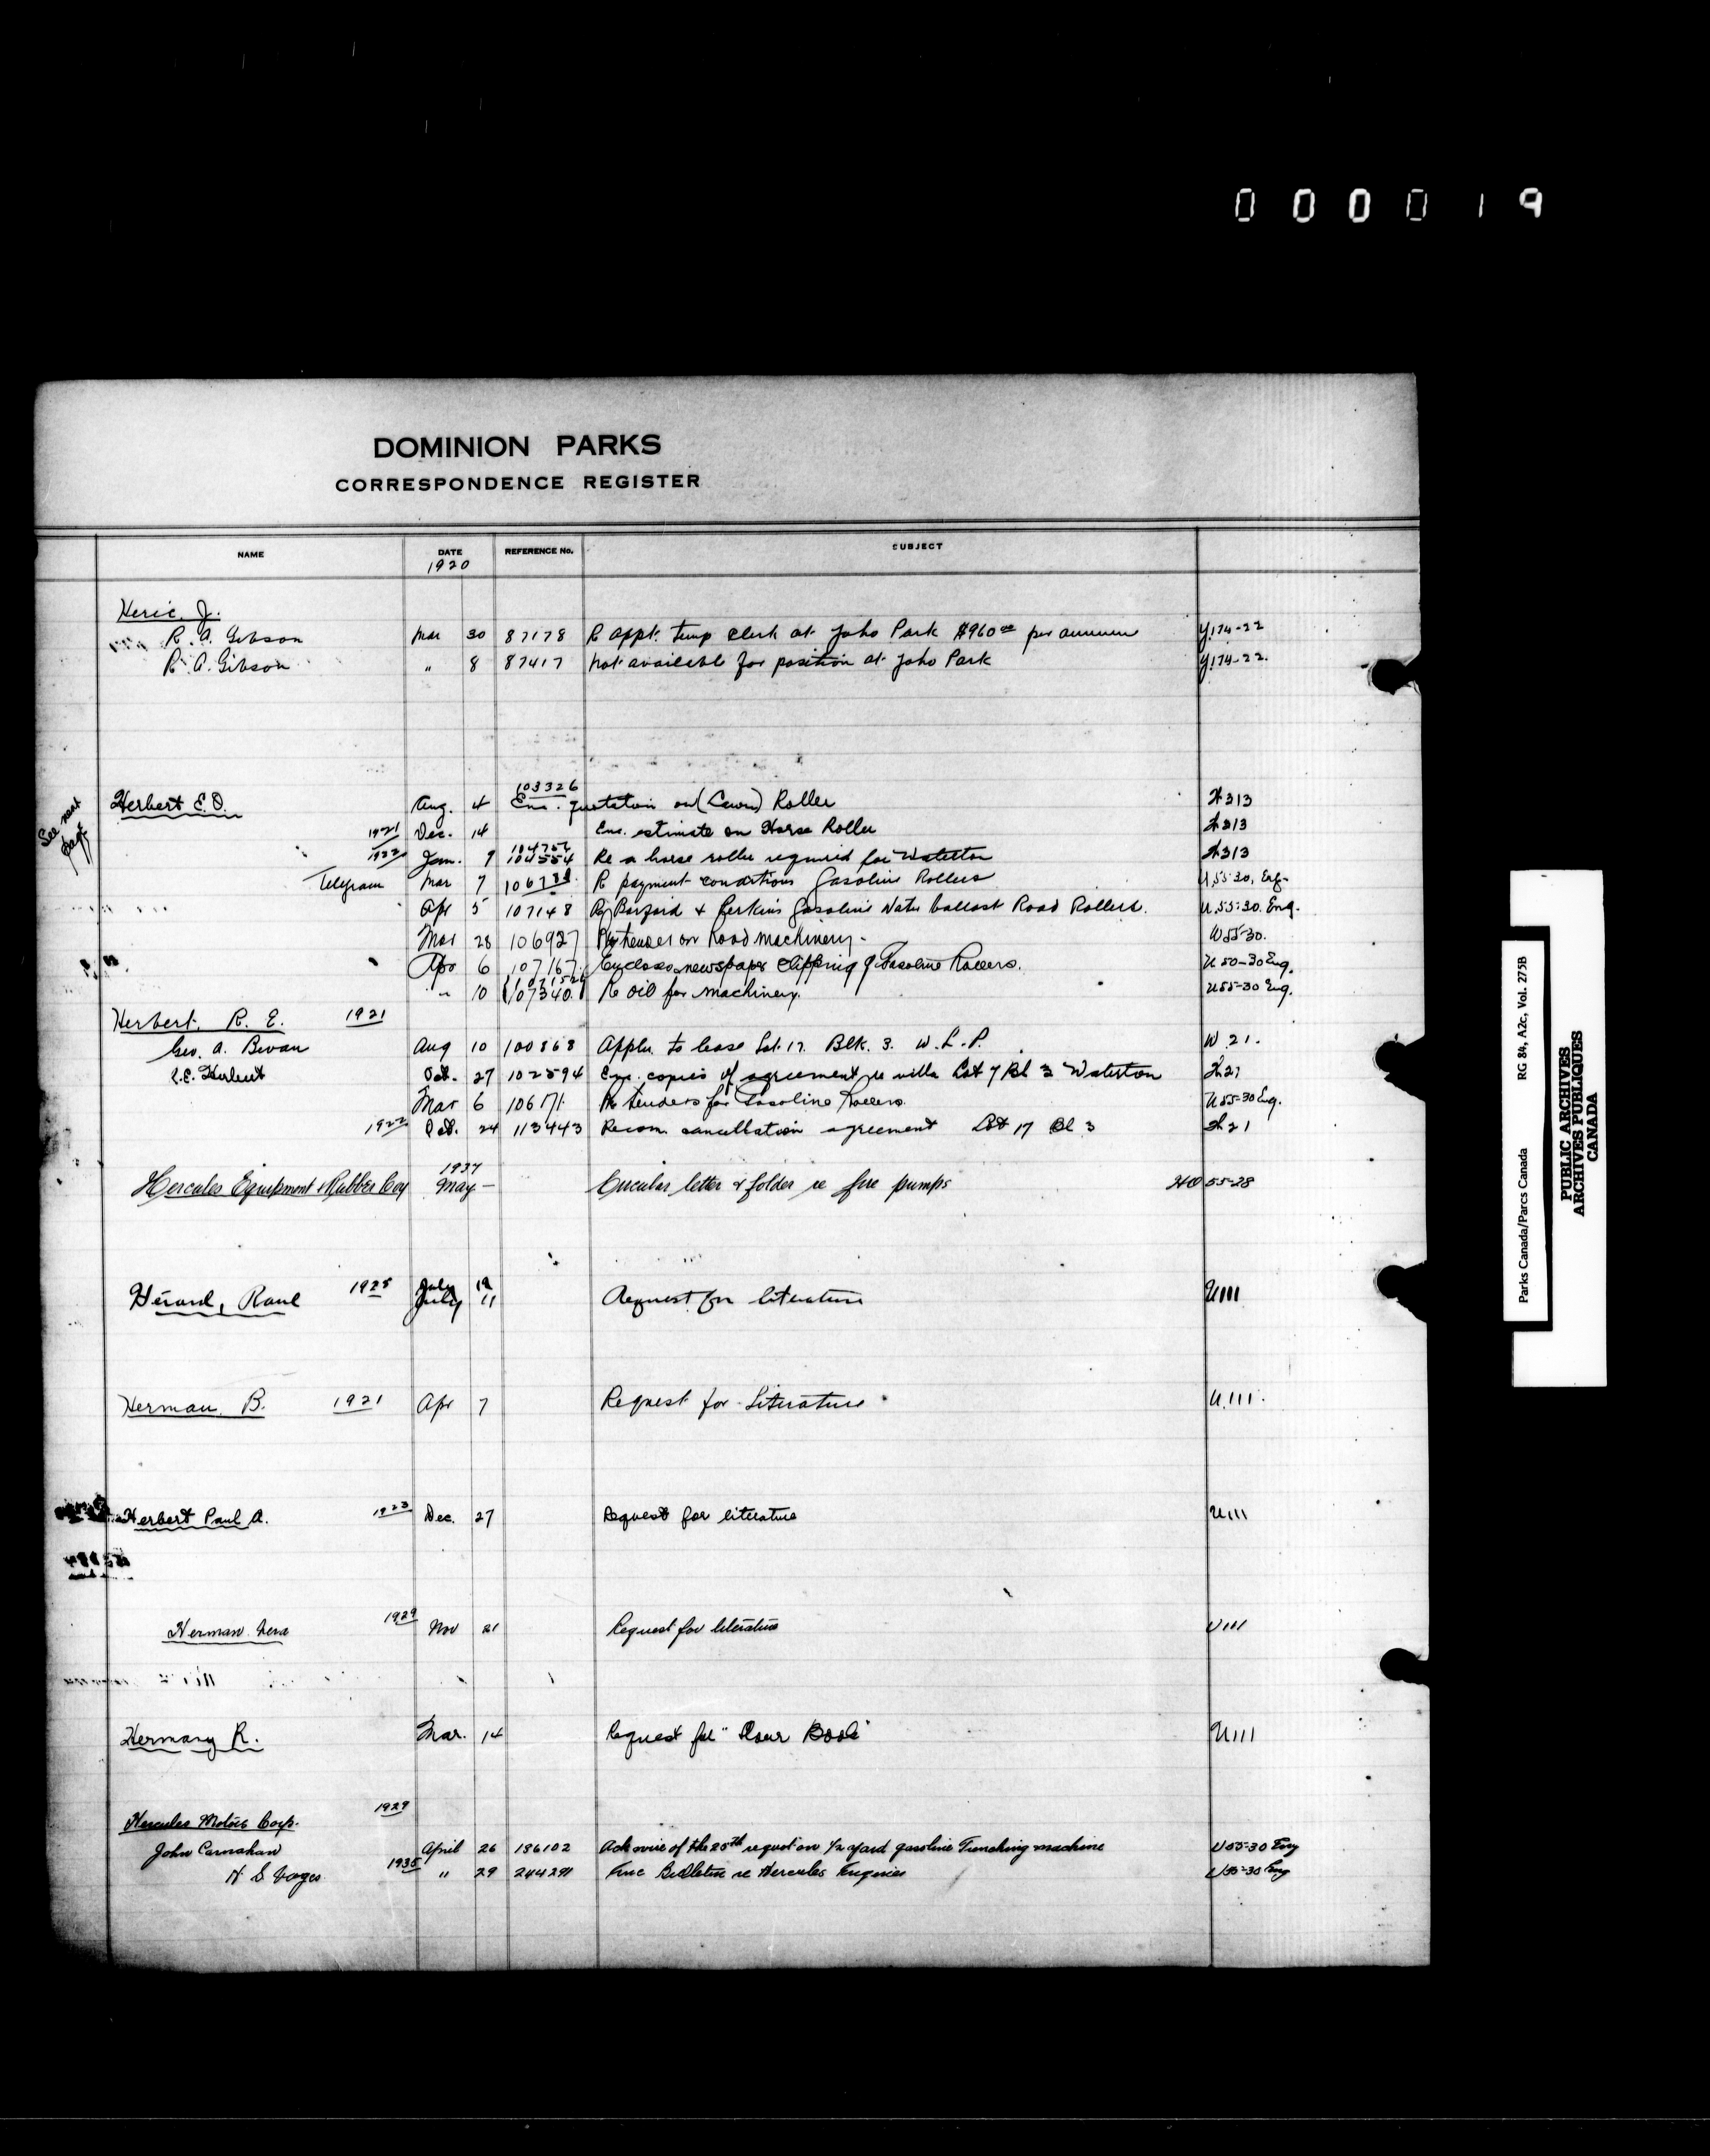 000019
DOMINION PARKS
CORRESPONDENCE REGISTER
NAME DATE REFERENCE No. SUBJECT
1920
Heric, J.
R. A. Gibson Mar 30 87178 R appt. temp clerk at Yoho Park $960 00 per annum Y174-22
R. A. Gibson " 8 87417 Not available for position at Yoho Park Y174-22.
See next page
103326
Herbert E. O. Aug. 4 Enc. quotation on (Lawn) Roller W313
1921 Dec. 14 Enc. estimate on Horse Roller W313
1922 Jan. 9 104554 Re a horse roller required for Waterton W313
Telegram Mar 7 R payment conditions Gasoline Rollers U.55-30. Eng.
Apr 5 107148 Barford & Perkins Gasoline Water ballast Road Rollers. U.55-30. Eng.
Mar 28 106927 tender on Road Machinery. U55-30.
Apr 6 107167 Encloses newspaper clipping of Gasoline Rollers. U 50-30 Eng.
" 10 107340 Re oil for machinery. U55-30 Eng.
Herbert, R. E. 1921
Geo. A. Bevan Aug 10 100868 Appln. to lease Lot. 17. Blk. 3. W. L. P. W.21.
R.E. Herbert Oct. 27 102594 Enc. copies of agreement re villa Lot 7 Bl 3 Waterton W21
Mar 6 106171. Re tenders for Gasoline Rollers. U55-30 Eng.
1922 Oct. 24 113443 Recom. cancellation agreement Lot 17 Bl 3 W21
1937
Hercules Equipment & Rubber Coy May — Circular letter & folder re fire pumps HO 55-28
July 19
Hérard, Raul 1925 July 11 Request for literature U111
Herman. B. 1921 Apr 7 Request for Literature U.111.
Herbert Paul A. 1923 Dec. 27 Request for literature U111
Herman 1929 Nov 21 Request for literature U111
Hermary R. Mar. 14 Request for " Book" U111
1929
Hercules Motors Corp.
John Carnahan April 26 186102 Ack wire of the 25th request on 1/2 yard gasoline Trenching machine U55-30 Eng
H S 1935 " 29 244291 Enc Bulletin re Hercules Engines U55-30 Eng
Parks Canada/Parcs Canada RG 84, A2c, Vol. 275B
PUBLIC ARCHIVES
ARCHIVES PUBLIQUES
CANADA